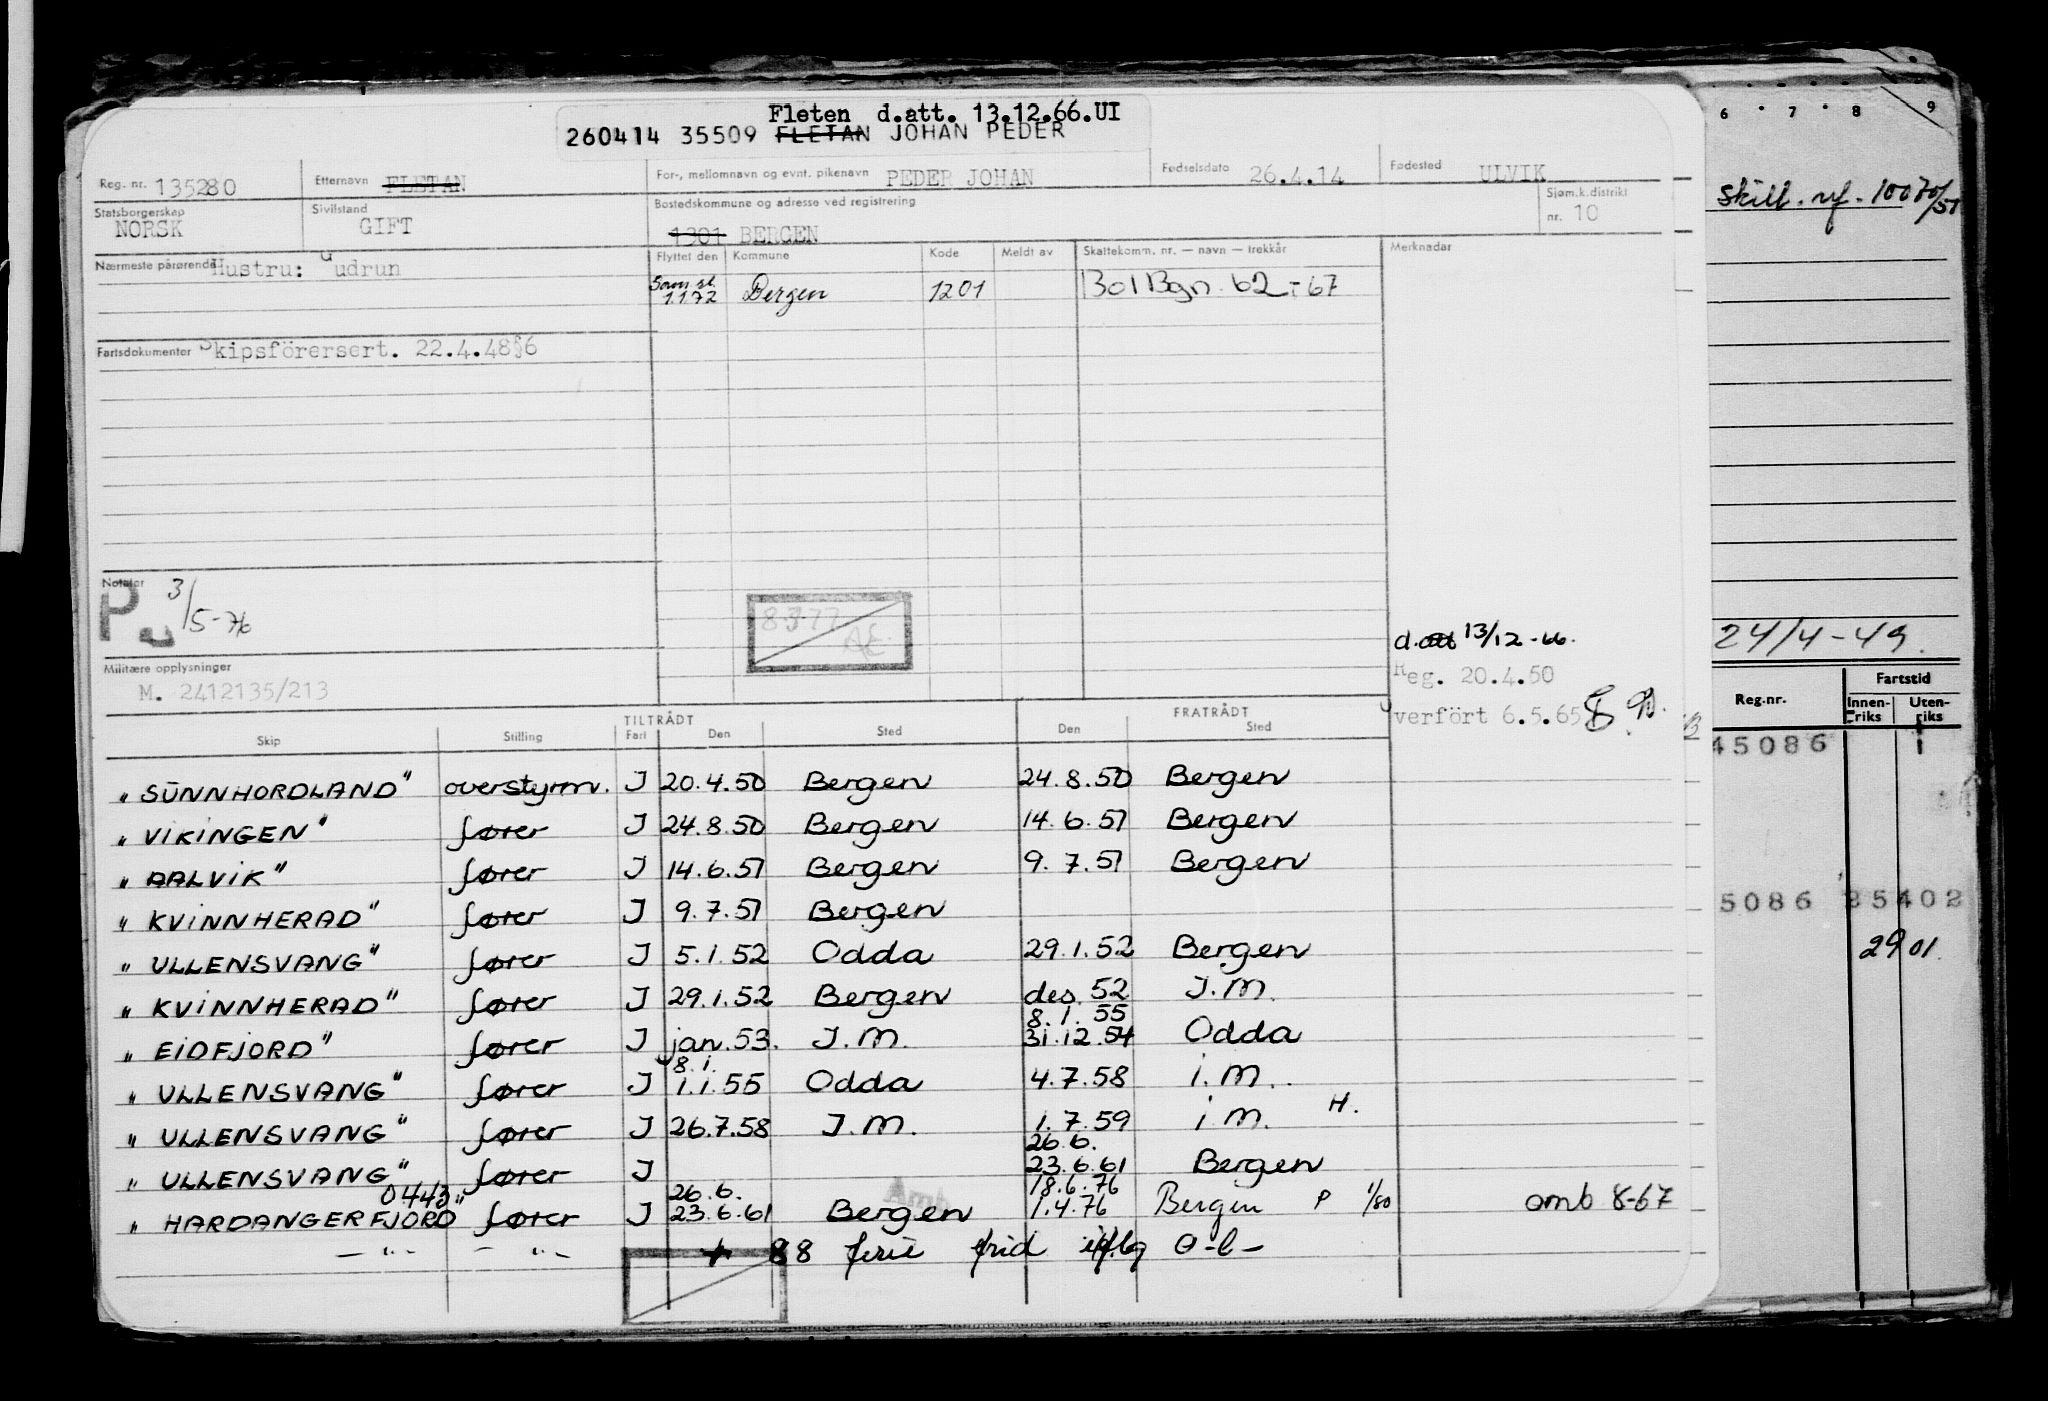 Fleten d.att. 13.12.66.UI
260414 35509 FLETAN JOHAN PEDER
Reg. nr. 135280 Etternavn FLETAN For-, mellomnavn og evnt. pikenavn PEDER JOHAN Fødselsdato 26.4.14 Fødested ULVIK
Statsborgerskap NORSK Sivilstand GIFT Bostedskommune og adresse ved registrering 1301 BERGEN Sjøm.k.distrikt nr. 10
Nærmeste pårørende Hustru: Gudrun Flyttet den Kommune Kode Meldt av Skattekomm. nr. — navn — trekkår Merknader
Sam st. 1.1.72 Bergen 1201 1301 Bgn. 62-67
Fartsdokumenter Skipsförersert. 22.4.48§6
Notater
3/5-76
8-3-77
Militære opplysninger
M. 2412135/213
d.att 13/12-66.
Reg. 20.4.50
verfört 6.5.65
TILTRÅDT FRATRÅDT
Skip Stilling Fart Den Sted Den Sted
"SUNNHORDLAND" overstyrm. I 20.4.50 Bergen 24.8.50 Bergen
"VIKINGEN" fører I 24.8.50 Bergen 14.6.51 Bergen
"AALVIK" fører I 14.6.51 Bergen 9.7.51 Bergen
"KVINNHERAD" fører I 9.7.51 Bergen
"ULLENSVANG" fører I 5.1.52 Odda 29.1.52 Bergen
"KVINNHERAD" fører I 29.1.52 Bergen des. 52 I.M.
8.1.55
"EIDFJORD" fører I jan.53. I.M. 31.12.54 Odda
8.1.
"ULLENSVANG" fører I 1.1.55 Odda 4.7.58 i.M.
"ULLENSVANG" fører I 26.7.58 I.M. 1.7.59 i M. H.
26.6.
"ULLENSVANG" fører I 23.6.61 Bergen
0443 26.6. 18.6.76
"HARDANGERFJORD" fører I 23.6.61 Bergen 1.4.76 Bergen P 1/80 omb 8-67
— " — — " — + 88 ferie frid iflg O-l-
6 7 8 9
skill. nf. 10070/51
24/4-49.
Reg.nr. Fartstid
Innenriks Utenriks
45086
5086 25402
2901.